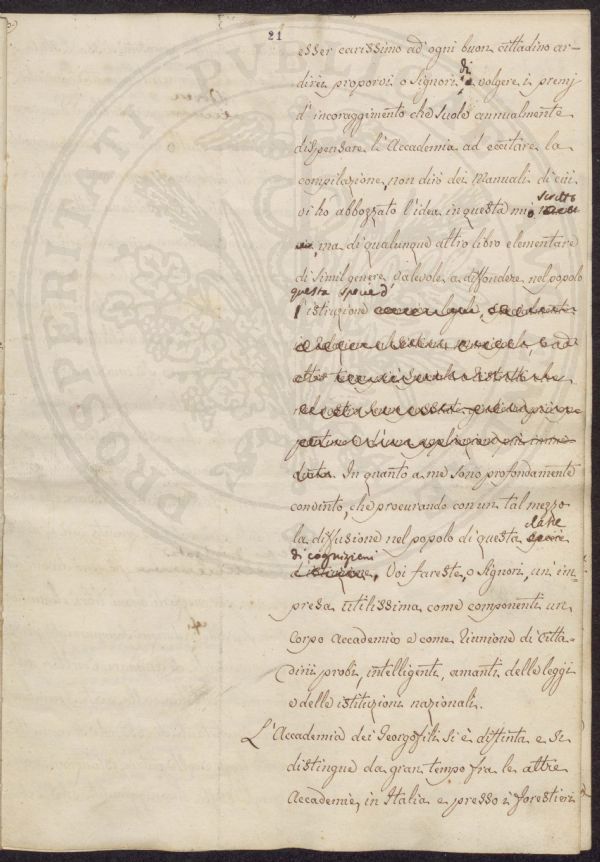 21
esser carissimo ad ogni buon cittadino ar-
direi proporvi o Signori di volgere i premj
d'incoraggimento che suole annualmente
dispensare l'Accademia ad eccitare la
compilazione, non dirò dei Manuali di cui
vi ho abbozzato l'idea in questo mio scritto
ma di qualunque altro libro elementare
di simil genere valevole a diffondere nel popolo
questa specie d'
istruzione
In quanto a me sono profondamente
convinto, che procurando con un tal mezzo
la diffusione nel popolo di questa classe
di cognizioni
Voi fareste, o Signori, un'im-
presa utilissima come componenti un
Corpo Accademico e come riunione di Citta-
dini probi, intelligenti, amanti delle leggi
e delle istituzioni nazionali.
L'Accademia dei Georgofili si è distinta e si
distingue da gran tempo fra le altre
Accademie, in Italia e presso i forestieri
PROSPERITATI PUBLICAE